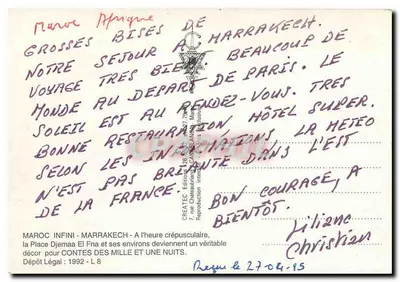 Maroc Afrique
GROSSES BISES DE MARRAKECH.
NOTRE SEJOUR A
VOYAGE TRES BIEN BEAUCOUP DE
MONDE AU DEPART DE PARIS. LE
SOLEIL EST AU RENDEZ-VOUS. TRES
BONNE RESTAURATION HÔTEL SUPER.
SELON LES INFORMATIONS LA METEO
N'EST PAS BRILLANTE DANS L'EST
DE LA FRANCE.
BON COURAGE, A
BIENTÔT.
Liliane
Christian
MAROC INFINI - MARRAKECH - A l'heure crépusculaire,
la Place Djemaa El Fna et ses environs deviennent un véritable
décor pour CONTES DES MILLE ET UNE NUITS.
Dépôt Légal : 1992 - L 8
Reçu le 27-04-95